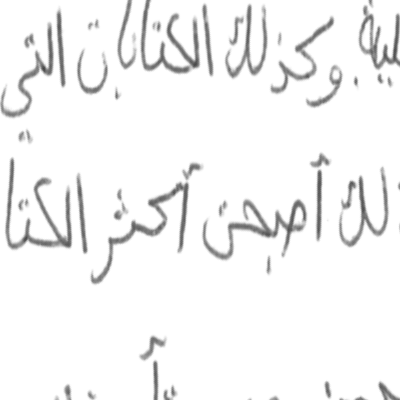 لية. وكذلك الكتابات التي
لك أصبحن أكثر الكتا